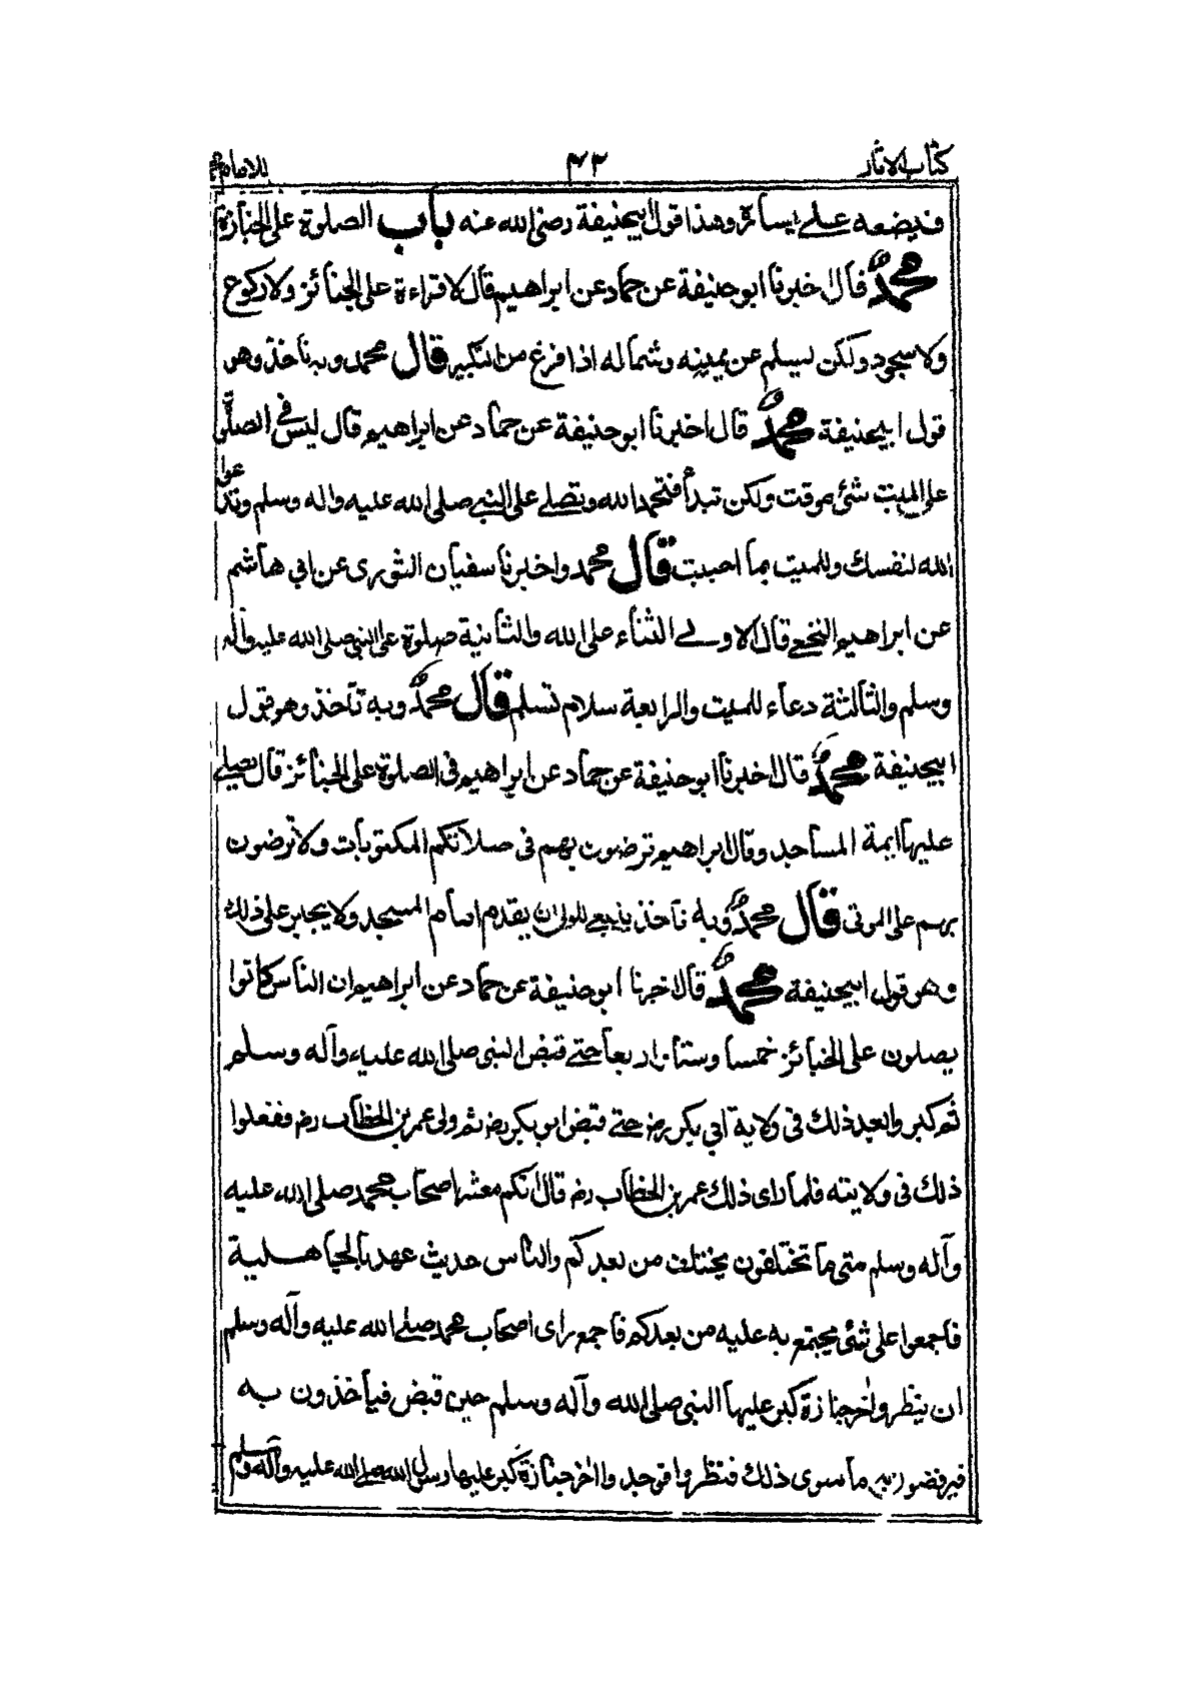 كتاب الاثار ٤٣ للامام محمد
فيضعه على يساره وهذا قول ابيحنيفة رضى الله عنه باب الصلوة على الجنازة
محمد قال اخبرنا ابو حنيفة عن حماد عن ابراهيم قال لا قراءة على الجنائز ولا ركوع
ولا سجود ولكن ليسلم عن يمينه وشماله اذا فرغ من التكبير قال محمد وبه ناخذ وهو
قول ابيحنيفة محمد قال اخبرنا ابو حنيفة عن حماد عن ابراهيم قال ليس فى الصلوة
على الميت شئ موقت ولكن تبدأ فتحمد الله وتصلے على النبے صلى الله عليه واله وسلم وتدعوا
الله لنفسك وللميت بما احببت قال محمد واخبرنا سفيان الثورى عن ابي هاشم
عن ابراهيم النخعے قال الاولے الثناء على الله والثانية صلوة على النبى صلى الله عليه وآله
وسلم والثالثة دعاء للميت والرابعة سلام تسلم قال محمد وبه ناخذ وهو قول
ابيحنيفة محمد قال اخبرنا ابو حنيفة عن حماد عن ابراهيم فى الصلوة على الجنائز قال يصلے
عليها ايمة المساجد وقال ابراهيم ترضون بهم فى صلاتكم المكتوبات ولا ترضون
بهم على الموتى قال محمد وبه ناخذ ينبغے للولى ان يقدم امام المسجد ولا يجبر على ذلك
وهو قول ابيحنيفة محمد قال اخبرنا ابو حنيفة عن حماد عن ابراهيم ان الناس كانوا
يصلون على الجنائز خمسا وستا واربعا حتے قبض النبى صلى الله عليه وآله وسلم
ثم كبروا بعد ذلك فى ولاية ابي بكر رض حتے قبض ابو بكر رض ثم ولى عمر بن الخطاب رض ففعلوا
ذلك فى ولايته فلما راى ذلك عمر بن الخطاب رض قال انكم معشر اصحاب محمد صلى الله عليه
وآله وسلم متى ما تختلفون يختلف من بعدكم والناس حديث عهد بالجاهلية
فاجمعوا على شئ يجتمع به عليه من بعدكم فاجمع راى اصحاب محمد صلے الله عليه وآله وسلم
ان ينظروا اخر جنازة كبر عليها النبى صلى الله وآله وسلم حين قبض فياخذون به
فيرفضون به ما سوى ذلك فنظروا فوجدوا اخر جنازة كبر عليها رسول الله صلے الله عليه وآله وسلم